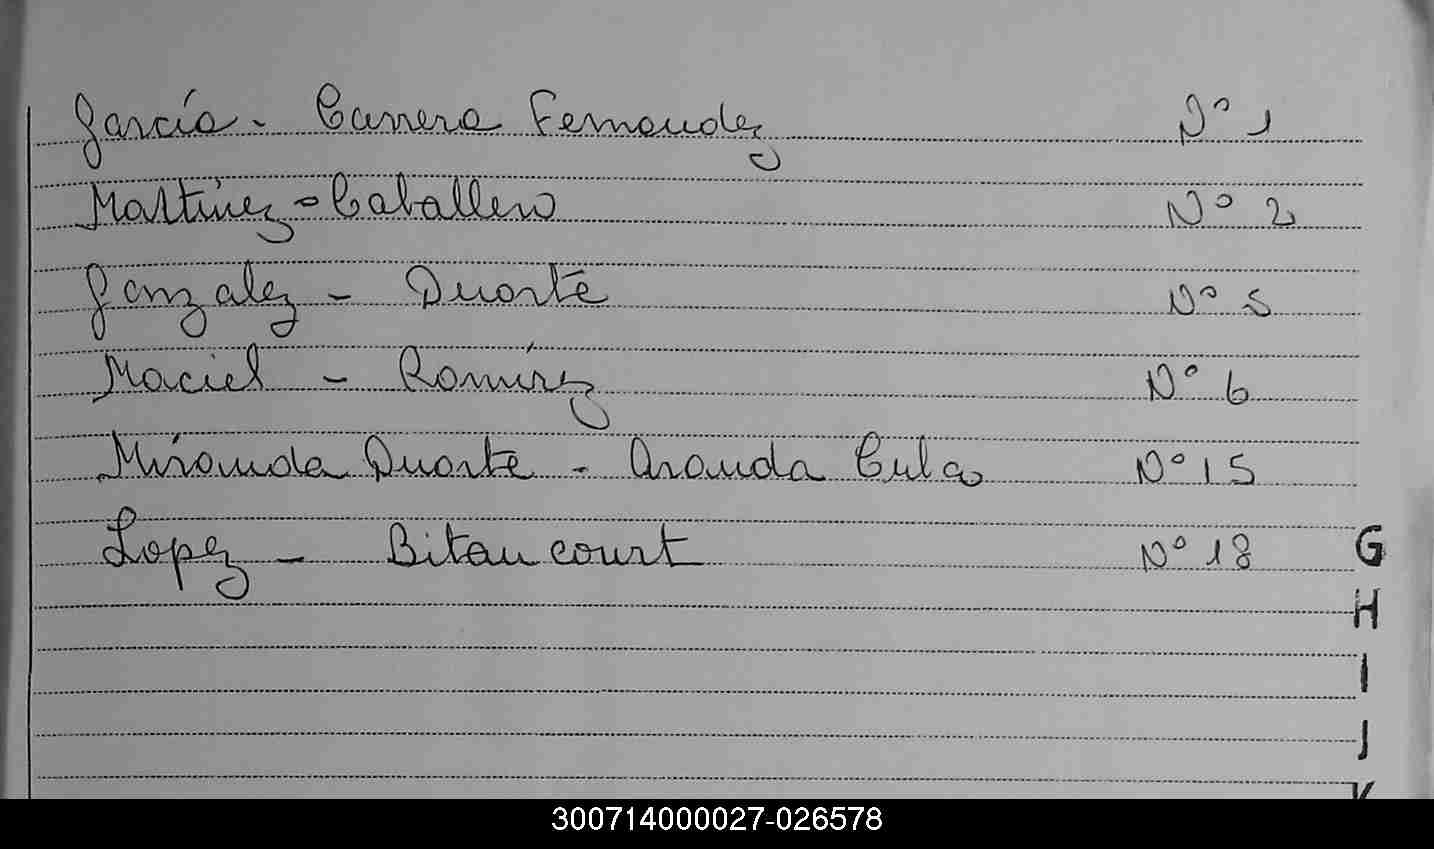 García - Carrera Fernandez Nº 1
Martínez - Caballero Nº 2
Gonzalez - Duarte Nº 5
Maciel - Ramírez Nº 6
Miranda Duarte - Aranda Nº 15
Lopez - Bitancourt Nº 18
G
H
I
J
300714000027-026578